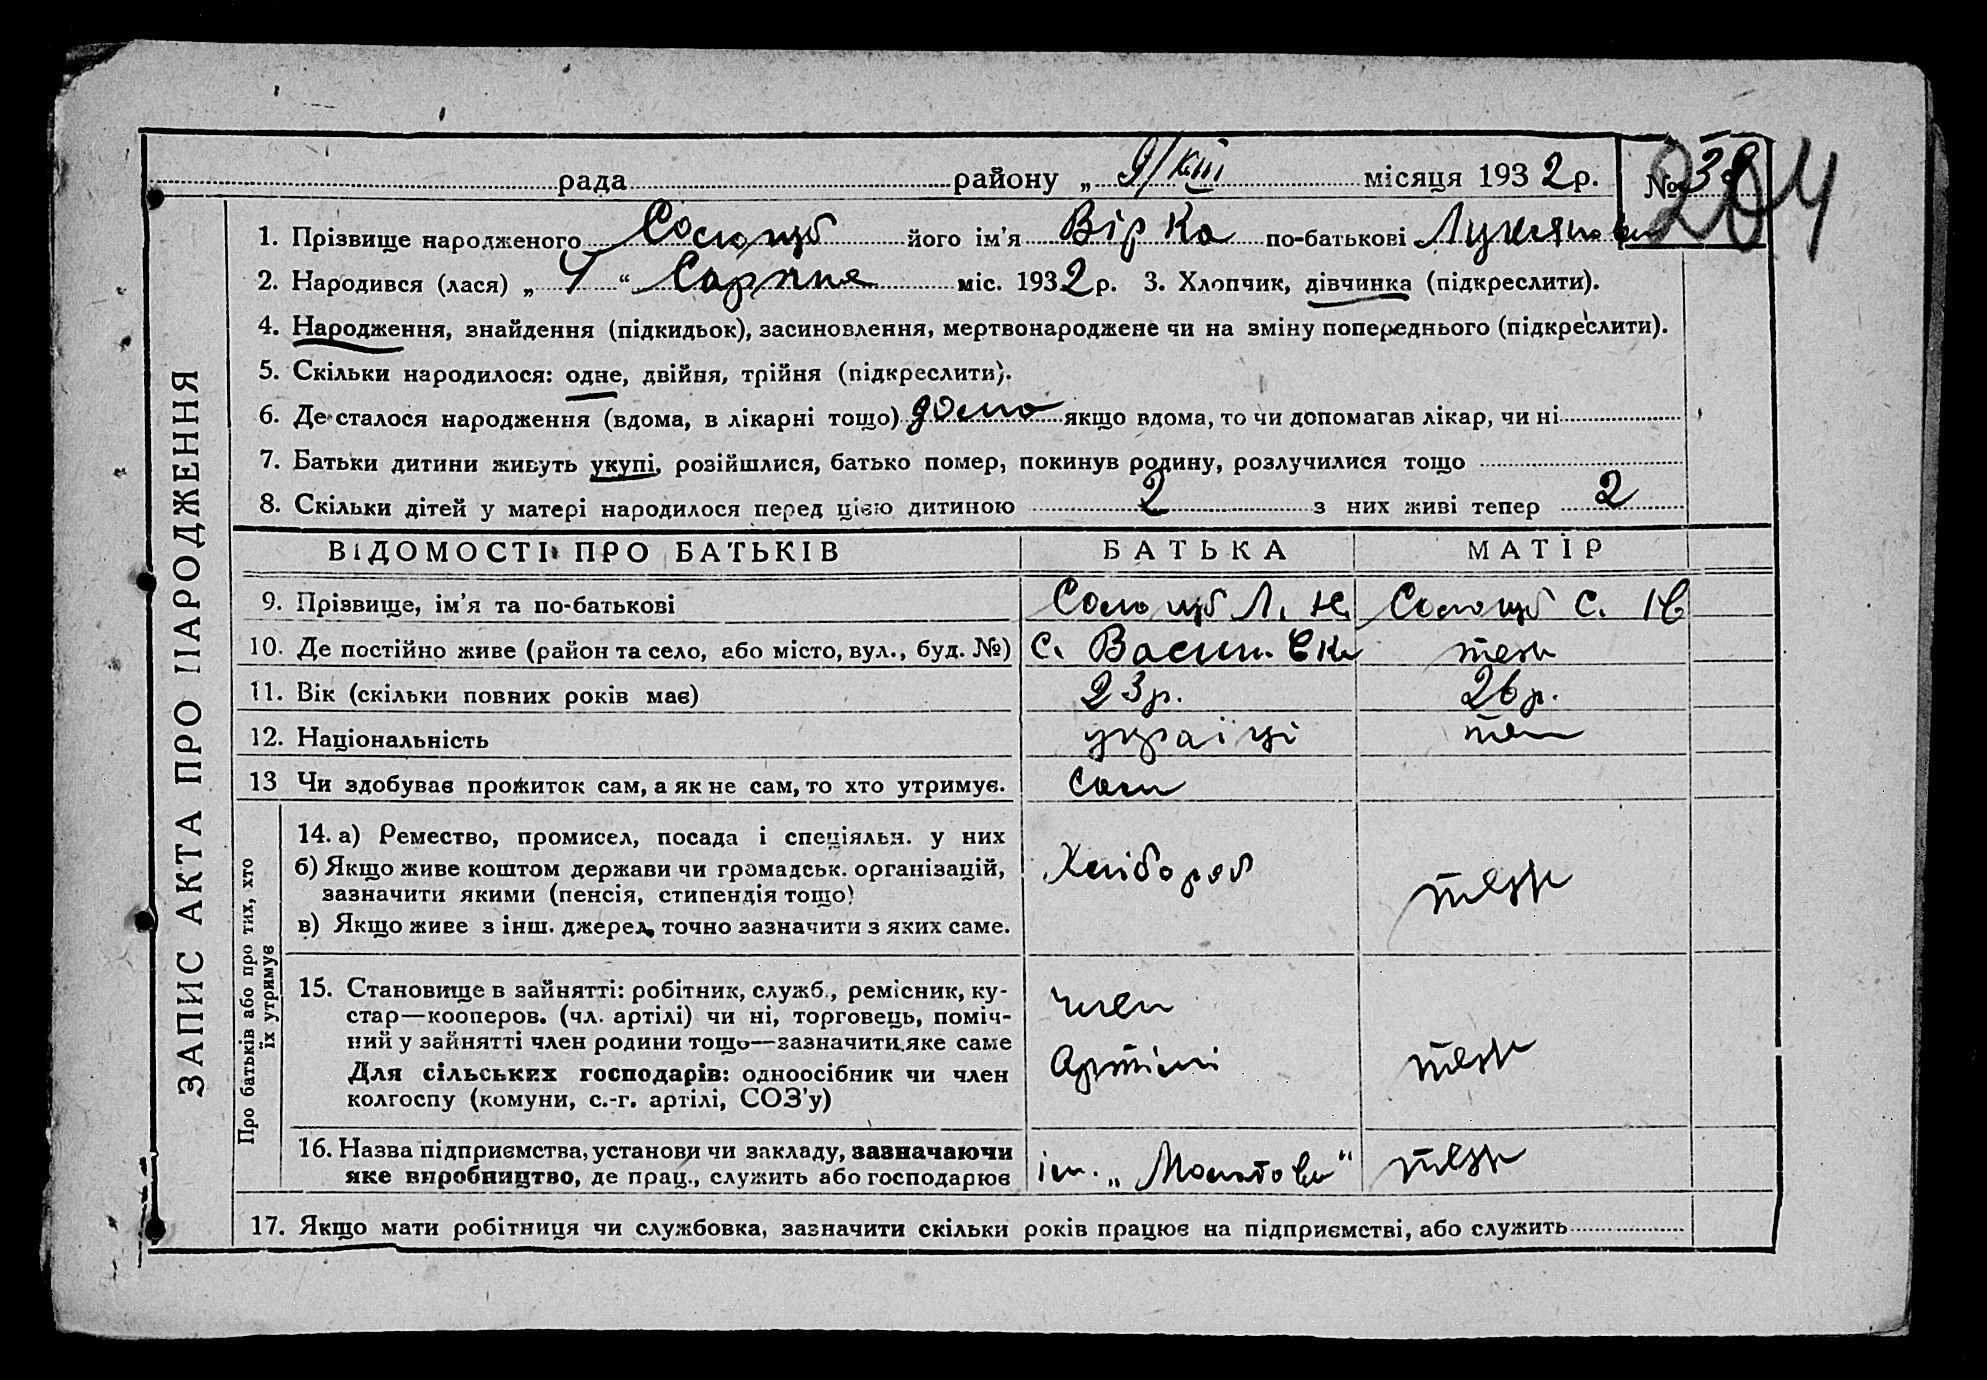 рада району „ 9/VIII місяця 1932 р. № 39
204
1. Прізвище народженого Сологуб його ім'я Вірка по-батькові Лукянов
2. Народився (лася) „ 4 “ Серпня міс. 1932 р. 3. Хлопчик, дівчинка (підкреслити).
4. Народження, знайдення (підкидьок), засиновлення, мертвонароджене чи на зміну попереднього (підкреслити).
5. Скільки народилося: одне, двійня, трійня (підкреслити).
6. Де сталося народження (вдома, в лікарні тощо) дома якщо вдома, то чи допомагав лікар, чи ні
7. Батьки дитини живуть укупі, розійшлися, батько помер, покинув родину, розлучилися тощо
8. Скільки дітей у матері народилося перед цією дитиною 2 з них живі тепер 2
ЗАПИС АКТА ПРО НАРОДЖЕННЯ
ВІДОМОСТІ ПРО БАТЬКІВ БАТЬКА МАТІР
9. Прізвище, ім'я та по-батькові Сологуб Л. Сологуб С.
10. Де постійно живе (район та село, або місто, вул., буд. №) с. теж
11. Вік (скільки повних років має) 23 р. 26 р.
12. Національність україці теж
13 Чи здобуває прожиток сам, а як не сам, то хто утримує. сам
Про батьків або про тих, хто
їх утримує
14. а) Ремество, промисел, посада і спеціяльн. у них
б) Якщо живе коштом держави чи громадськ. організацій,
зазначити якими (пенсія, стипендія тощо)
в) Якщо живе з інш. джерел, точно зазначити з яких саме.
Хлібороб теж
15. Становище в зайнятті: робітник, служб., ремісник, ку-
стар—кооперов. (чл. артілі) чи ні, торговець, поміч-
ний у зайнятті член родини тощо—зазначити, яке саме
Для сільських господарів: одноосібник чи член
колгоспу (комуни, с.-г. артілі, СОЗ'у)
член
Артілі теж
16. Назва підприємства, установи чи закладу, зазначаючи
яке виробництво, де прац., служить або господарює
ім. „Молотова“ теж
17. Якщо мати робітниця чи службовка, зазначити скільки років працює на підприємстві, або служить